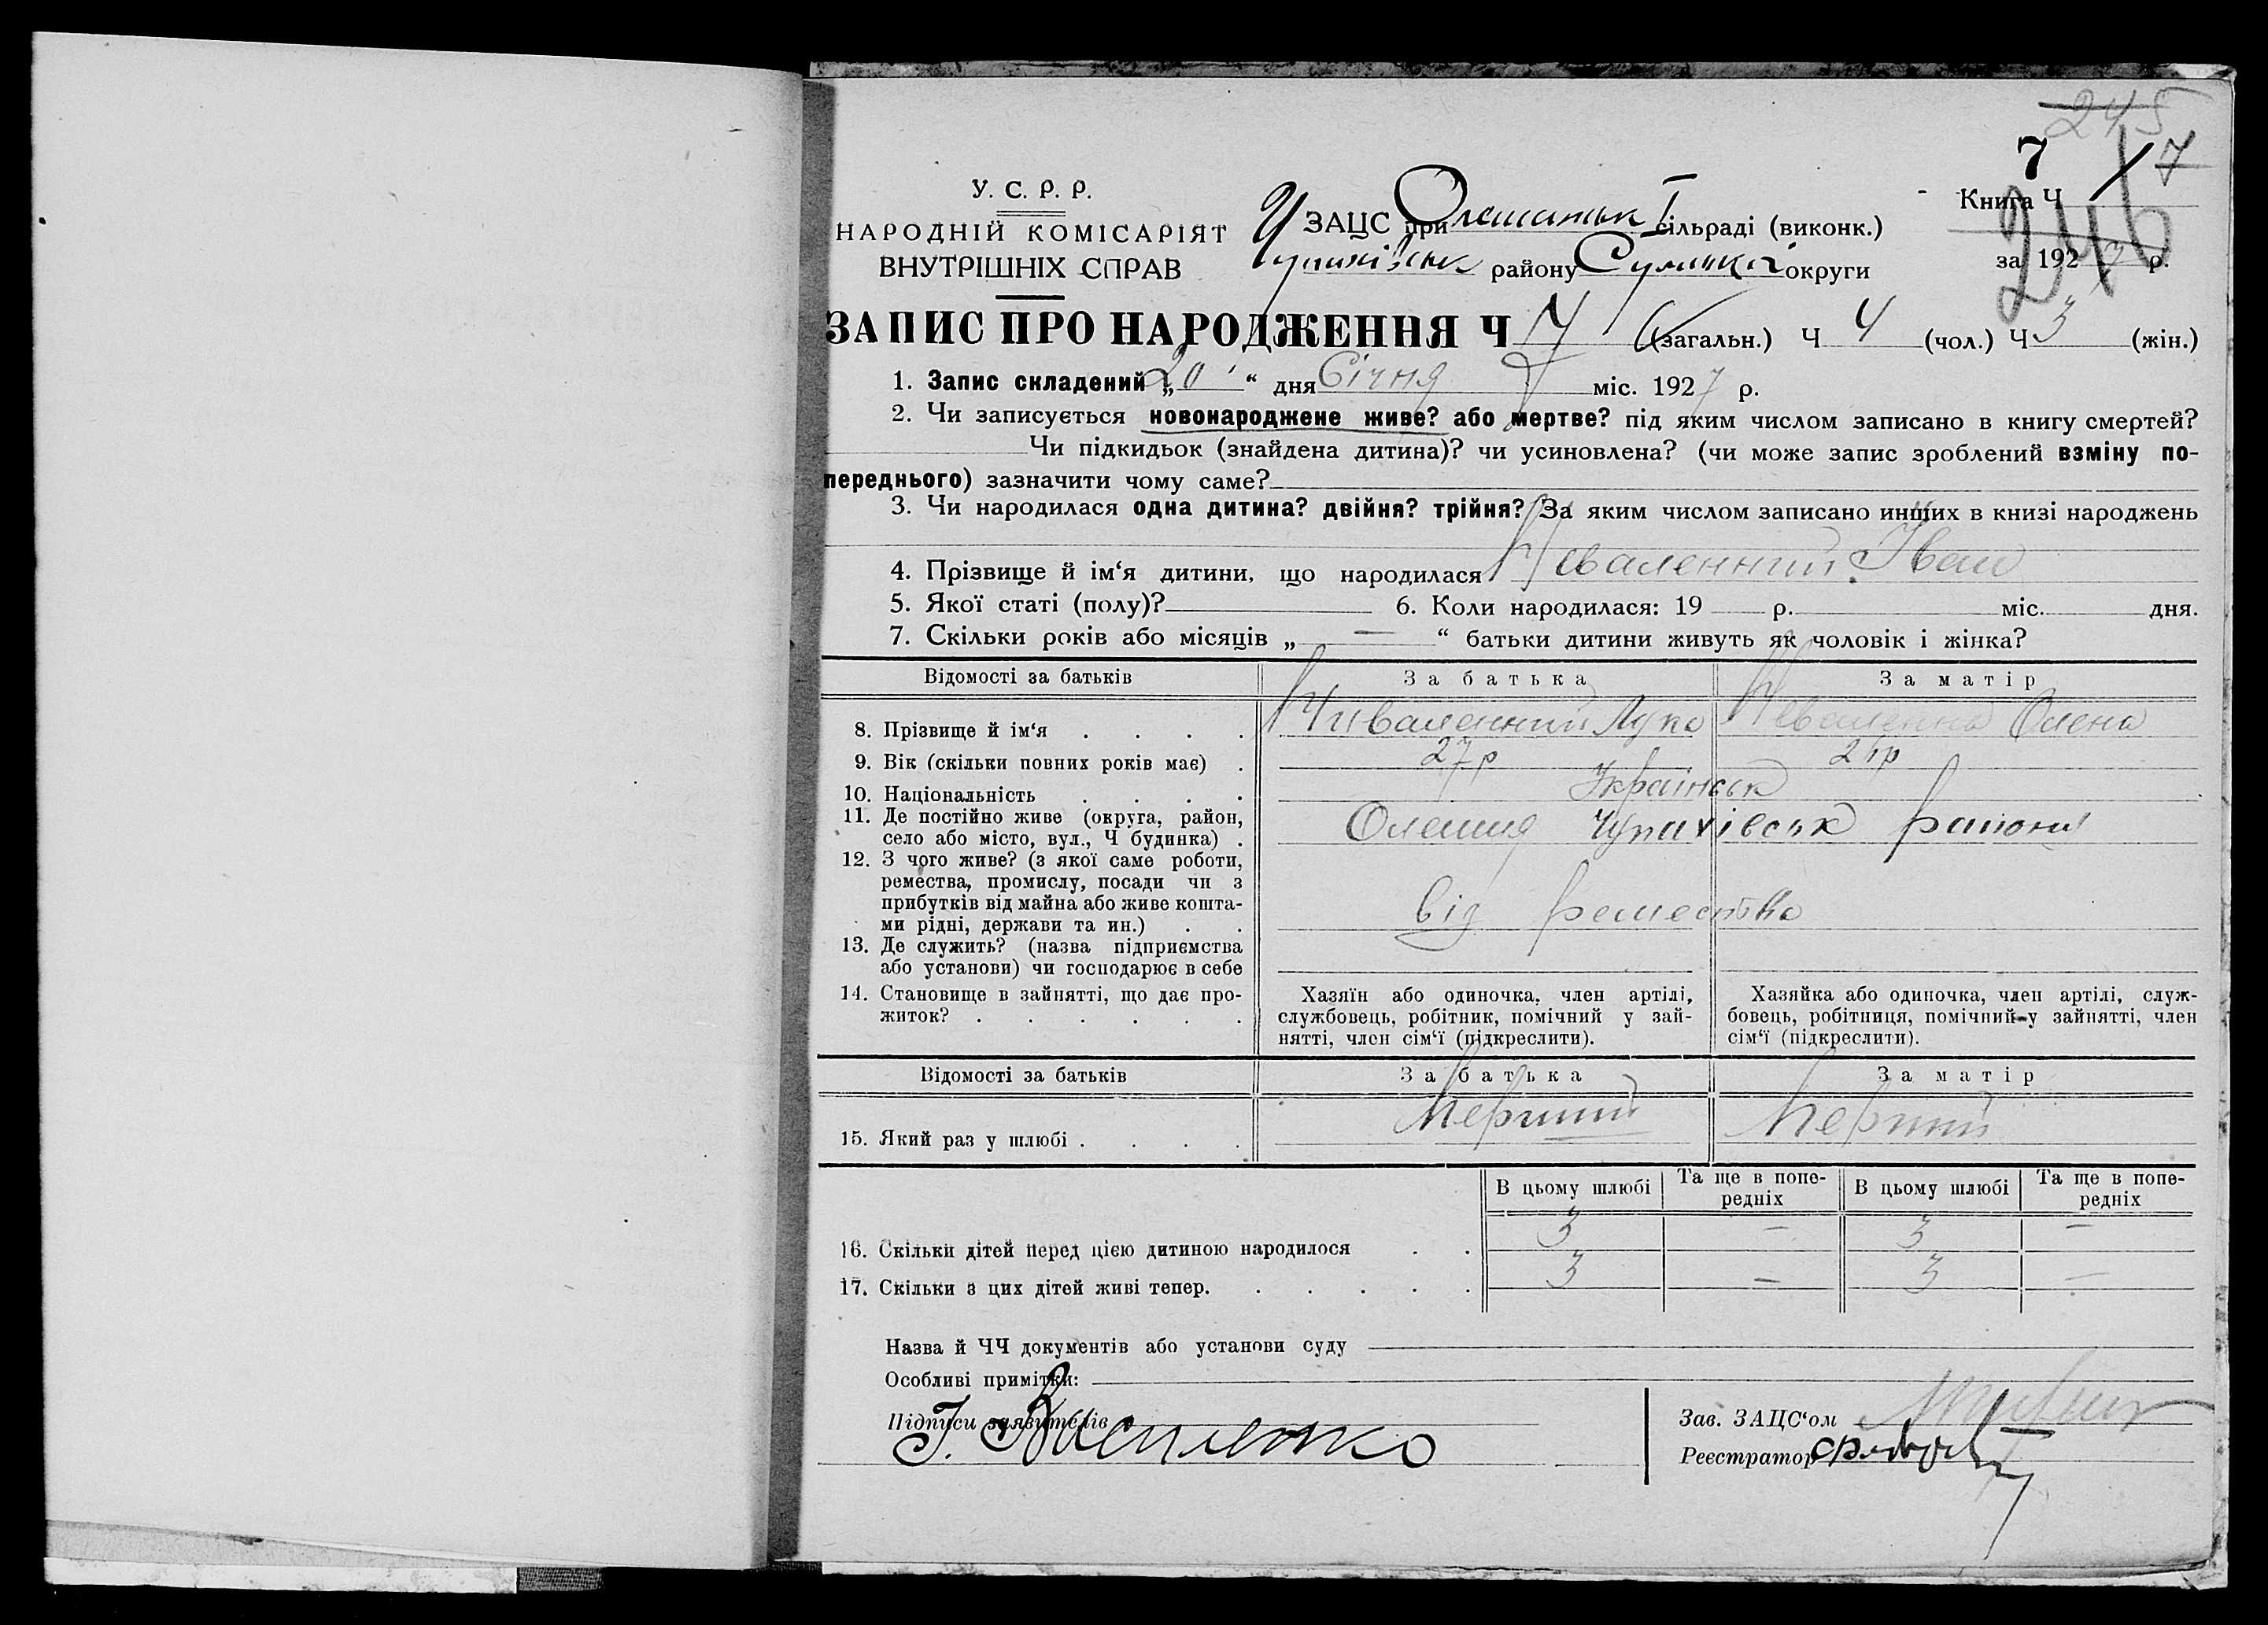 245
7 7
У. С. Р. Р.
НАРОДНІЙ КОМІСАРІЯТ
ВНУТРІШНІХ СПРАВ
ЗАЦС при Олешанськ I сільраді (виконк.)
Чупахівськ району Сумської округи
Книга Ч
246
за 1927 р.
ЗАПИС ПРО НАРОДЖЕННЯ Ч 7 (загальн.) Ч 4 (чол.) Ч 3 (жін.)
1. Запис складений „20“ дня Січня міс. 1927 р.
2. Чи записується новонароджене живе? або мертве? під яким числом записано в книгу смертей?
Чи підкидьок (знайдена дитина)? чи усиновлена? (чи може запис зроблений взміну по-
переднього) зазначити чому саме?
3. Чи народилася одна дитина? двійня? трійня? За яким числом записано инших в книзі народжень
4. Прізвище й ім‘я дитини, що народилася Неваленний Іван
5. Якої статі (полу)? 6. Коли народилася: 19 р. міс. дня.
7. Скільки років або місяців „ — “ батьки дитини живуть як чоловік і жінка?
Відомості за батьків За батька За матір
8. Прізвище й ім‘я . . . . Луко Олена
9. Вік (скільки повних років має) . 27 р р
10. Національність . . . . Українськ
11. Де постійно живе (округа, район,
село або місто, вул., Ч будинка) . Олешня Чупахівськ району
12. З чого живе? (з якої саме роботи,
ремества, промислу, посади чи з
прибутків від майна або живе кошта-
ми рідні, держави та ин.) . . від ремества
13. Де служить? (назва підприємства
або установи) чи господарює в себе
14. Становище в зайнятті, що дає про-
житок? . . . . . .
Хазяїн або одиночка, член артілі,
службовець, робітник, помічний у зай-
нятті, член сім‘ї (підкреслити).
Хазяйка або одиночка, член артілі, служ-
бовець, робітниця, помічний у зайнятті, член
сім‘ї (підкреслити).
Відомості за батьків За батька За матір
15. Який раз у шлюбі . . . . Перший Перший
В цьому шлюбі Та ще в попе-
редніх В цьому шлюбі Та ще в попе-
редніх
16. Скільки дітей перед цією дитиною народилося . . 3 — 3 —
17. Скільки з цих дітей живі тепер. . . . . . 3 — 3 —
Назва й ЧЧ документів або установи суду
Особливі примітки:
Підписи заявителів
І. Василенко
Зав. ЗАЦС‘ом
Реєстратор